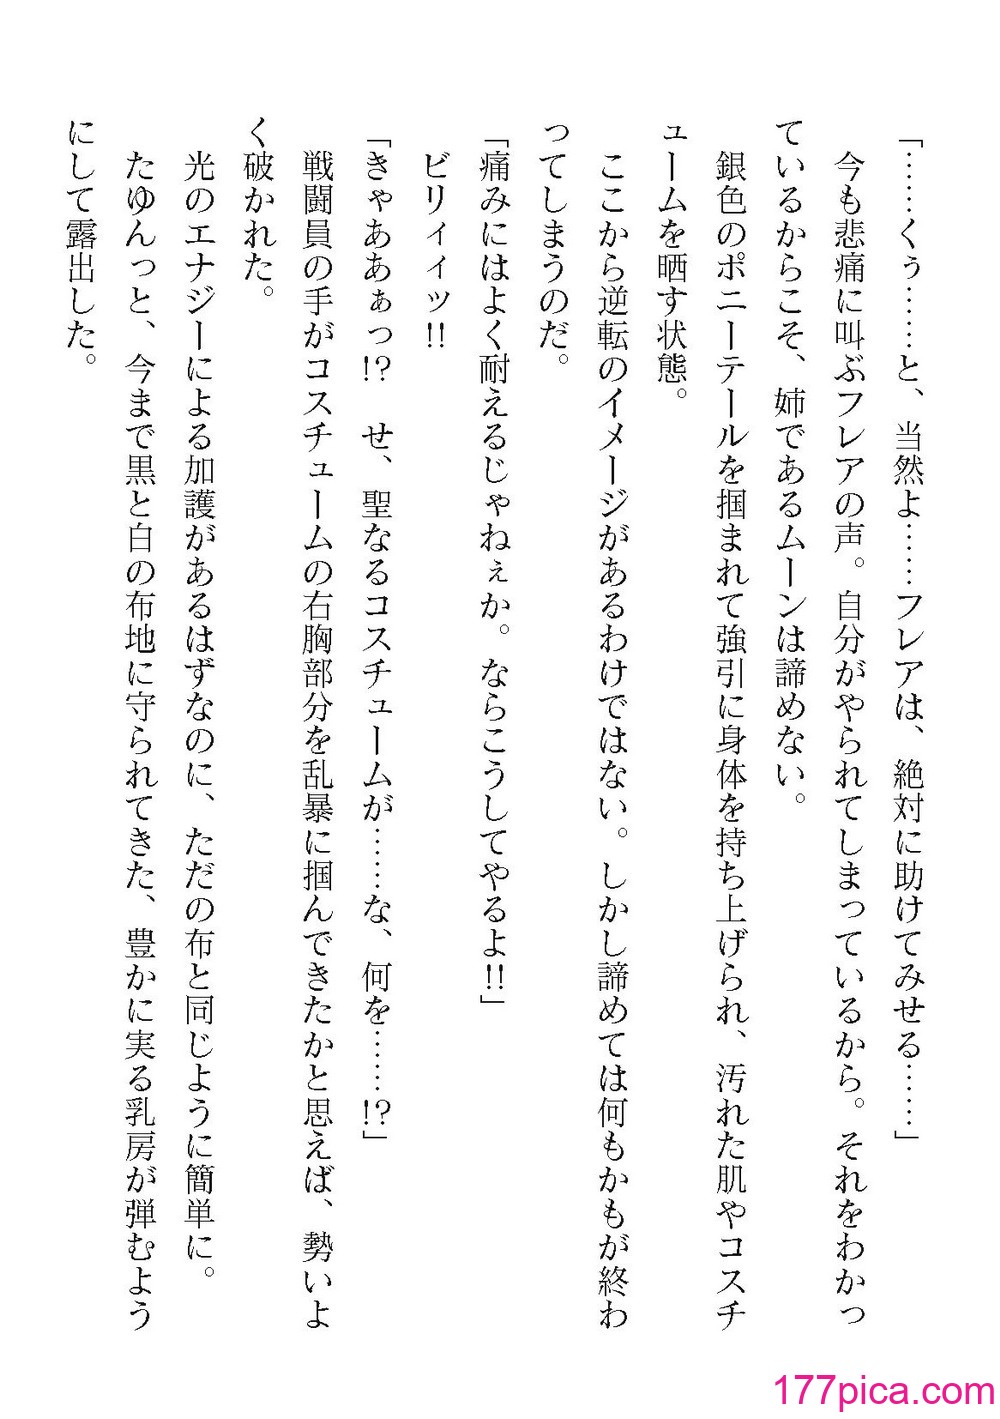 「……くぅ……と、当然よ……フレアは、絶対に助けてみせる……」
　今も悲痛に叫ぶフレアの声。自分がやられてしまっているから。それをわかっ
ているからこそ、姉であるムーンは諦めない。
　銀色のポニーテールを掴まれて強引に身体を持ち上げられ、汚れた肌やコスチ
ュームを晒す状態。
　ここから逆転のイメージがあるわけではない。しかし諦めては何もかもが終わ
ってしまうのだ。
「痛みにはよく耐えるじゃねぇか。ならこうしてやるよ!!」
　ビリィィッ!!
「きゃああぁっ!?　せ、聖なるコスチュームが……な、何を……!?」
　戦闘員の手がコスチュームの右胸部分を乱暴に掴んできたかと思えば、勢いよ
く破かれた。
　光のエナジーによる加護があるはずなのに、ただの布と同じように簡単に。
　たゆんっと、今まで黒と白の布地に守られてきた、豊かに実る乳房が弾むよう
にして露出した。
177pica.com